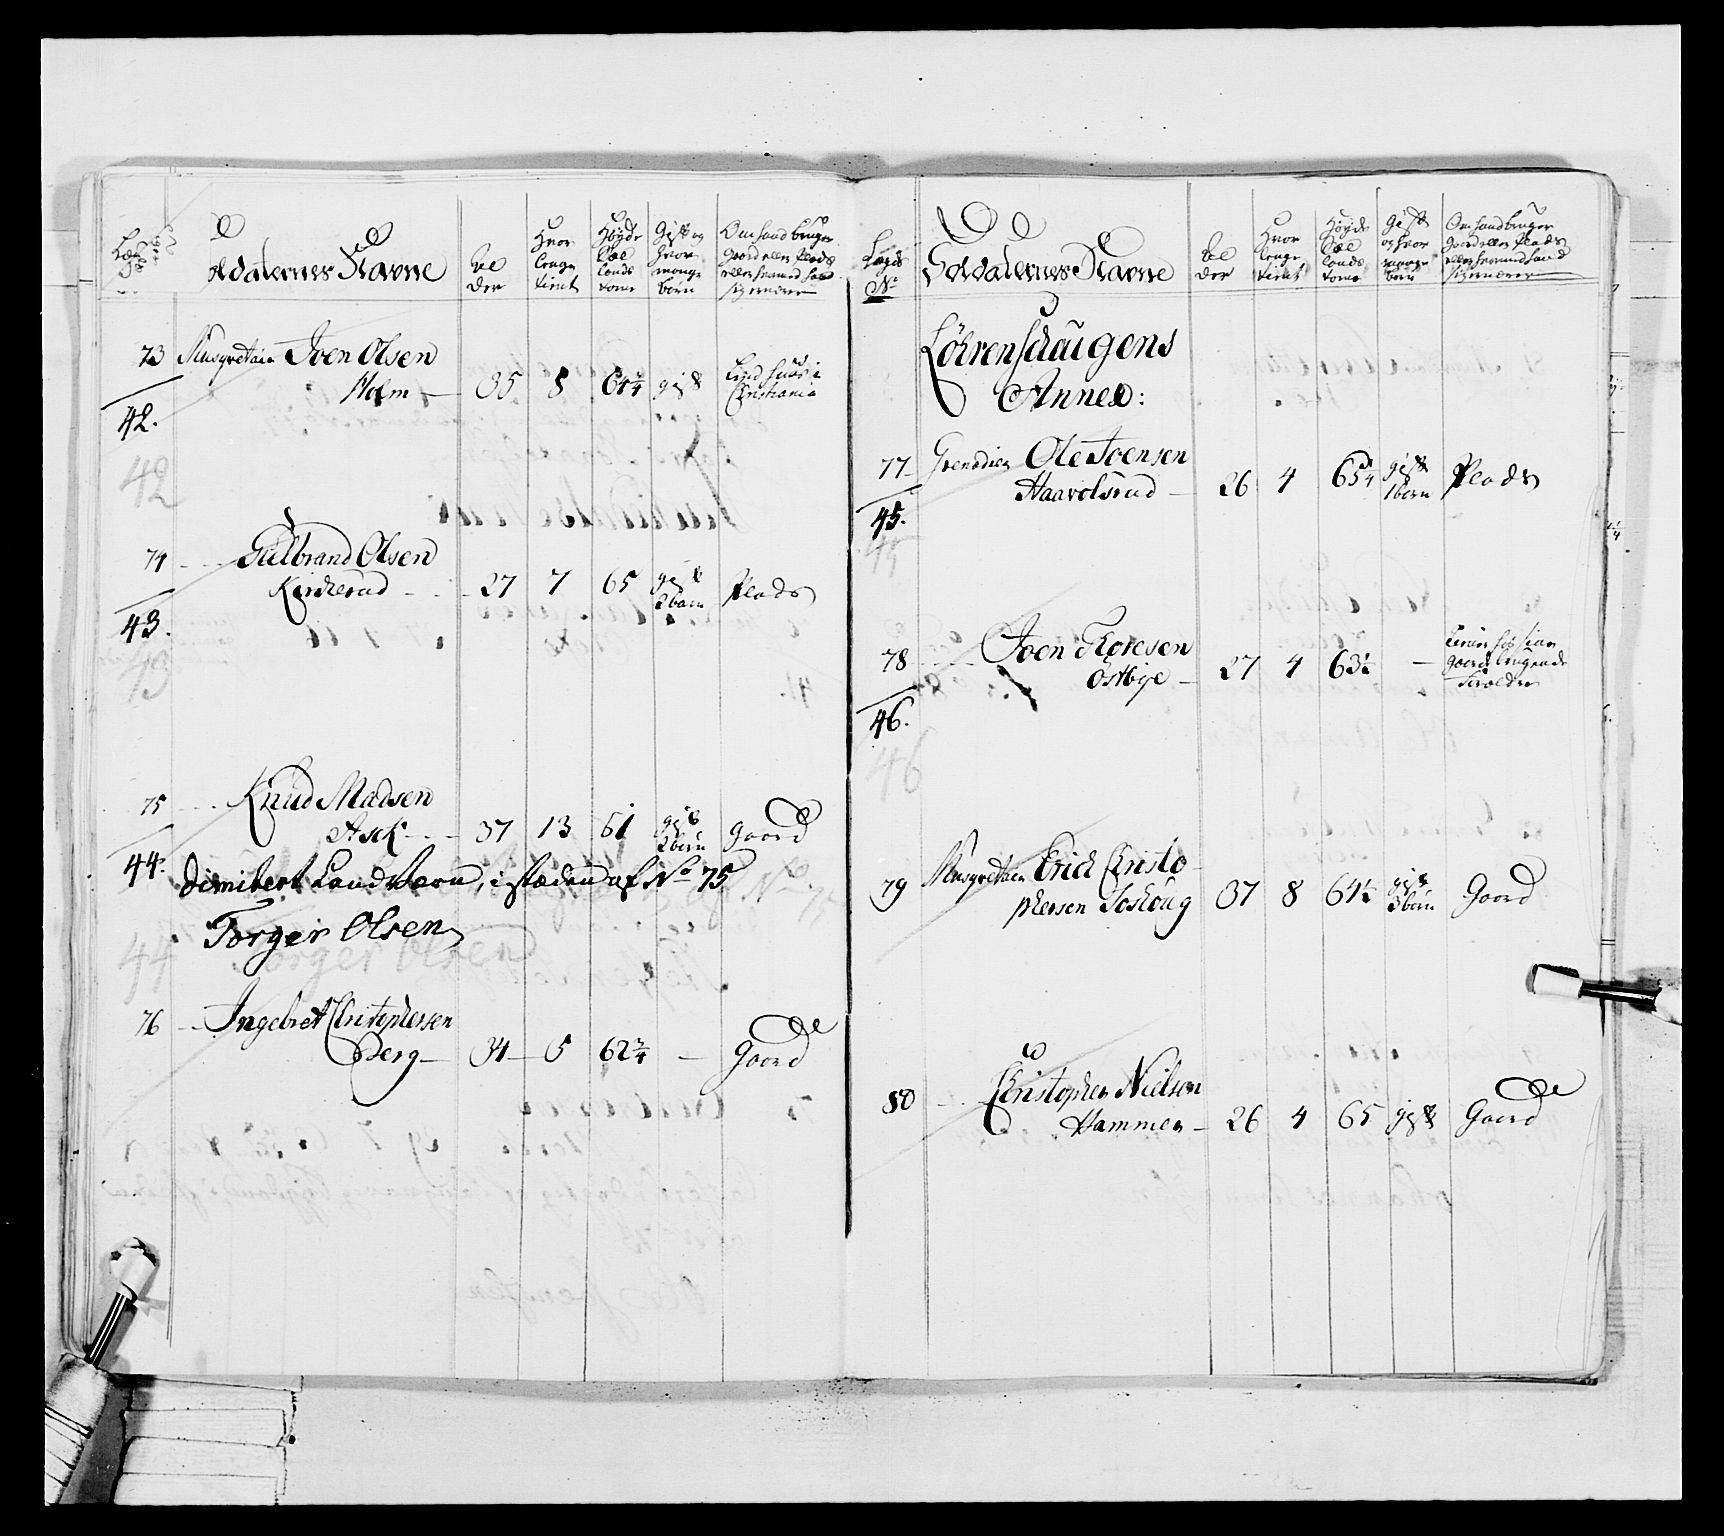 Soldaternes Navne
Al
der
Hvor
lenge
tient
Høyde
Sæl
lands
tome
Gift og
hvor
mange
børn
Om hand bruger
Gaard eller Plads
eller hvormed hand
sig ernærer
73 Musqvetair Joen Olsen
Holm 35 8 64¼ gift
Christiania
42.
42
74 Gulbrand Olsen
Kircherud 27 7 65 gift 2 børn Plads
43.
43
75 Knud Madsen
Asck 37 13 61 gift 2 børn Gaard
44.
dimitert Land værn, i stæden af No 75
Torger Olsen
44
76 Ingebret Christophersen
Berg 34 5 62¾ — Gaard
Lægds
No
Soldaternes Navne
Al
der
Hvor
lenge
tient
Høyde
Sæl
lands
tome
Gift
og hvor
mange
børn
Om hand bruger
Gaard eller Plads
eller hvormed hand
sig ernærer
Löhrenschaugens
Annex:
77 Grenadier Ole Joensen
Haavolsrud 26 4 65¾ gift 1 barn Plads
45.
45
78 Joen Thoresen
Ostbye 27 4 63½ —
Gaard brugende
Foreldre
46.
46
79 Musqvetair Erich Christo
phersen Toshoug 37 8 64½ gift 3 børn Gaard
80 Christopher Nielsen
Hammer 26 4 65 gift Gaard